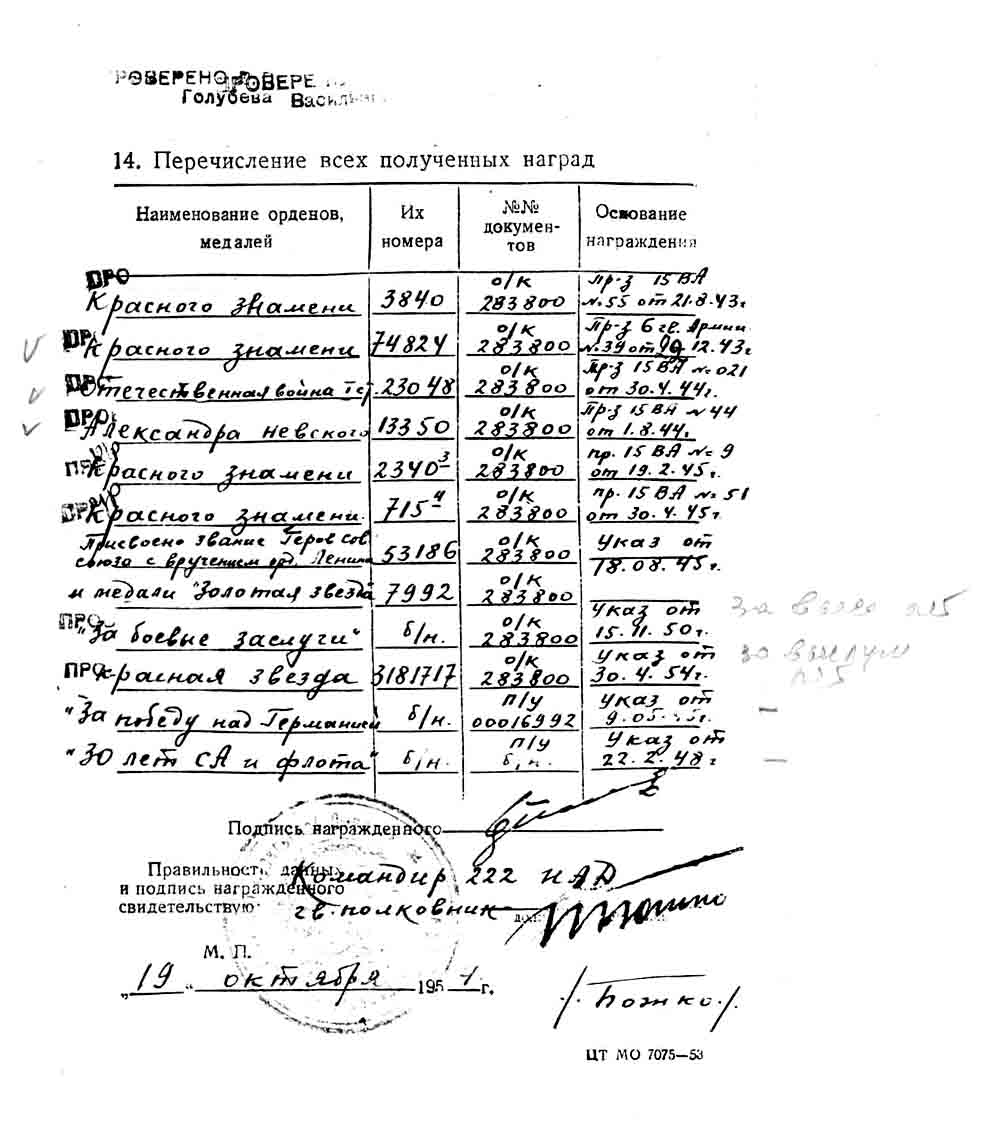 РОВЕРЕНО РОВЕРЕ
Голубева Васильева
14. Перечисление всех полученных наград
Наименование орденов, медалей
Их номера
№№ докумен-тов
Основание награждения
ПРО
Красного знамени 3840 о/к 283800 Пр-з 15 ВА №55 от 21.8.43г
ПР
Красного знамени 74824 о/к 283800 Пр-з 6 гв. Армии №39 от 12.43г
ПР
Отечественная война I ст. 23048 о/к 283800 Пр-з 15 ВА №021 от 30.4.44г.
ПРО
Александра невского 13350 о/к 283800 Пр-з 15 ВА №44 от 1.8.44г
ПР
Красного знамени 2340 3 о/к 283800 пр. 15 ВА №9 от 19.2.45г.
ПР
Красного знамени. 715 4 о/к 283800 пр. 15 ВА №51 от 30.4.45г
Присвоено звание Героя Сов союза с вручением орд. Ленина 53186 о/к 283800 Указ от 18.08.45г.
и медали "Золотая звезда 7992 о/к 283800
ПРО
"За боевые заслуги" б/н. о/к 283800 Указ от 15.11.50г.
за
ПРО
Красная звезда 3181717 о/к 283800 Указ от 30.4.54г.
за выслугу
"За победу над Германией б/н. п/у 00016992 Указ от 9.05. г. –
"30 лет СА и флота" б/н. п/у б/н. Указ от 22.2.48г –
Подпись награжденного
Правильность данных
и подпись награжденного
свидетельствую:
Командир 222 ИАД
гв. полковник
М. П.
„19" октября 1951 г.
/. Божко./.
ЦТ МО 7075—53